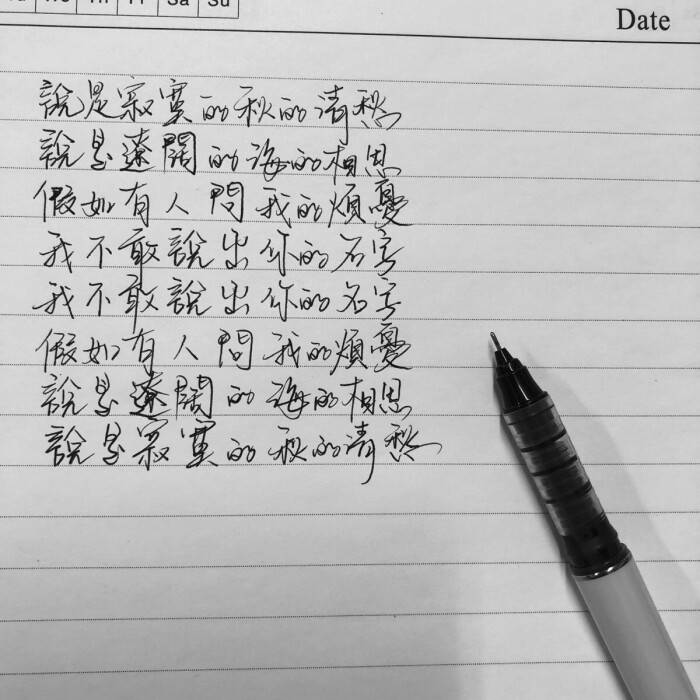 We Th Fr Sa Su
Date
說是寂寞的秋的清愁
說是遼闊的海的相思
假如有人問我的煩憂
我不敢說出你的名字
我不敢說出你的名字
假如有人問我的煩憂
說是遼闊的海的相思
說是寂寞的秋的清愁